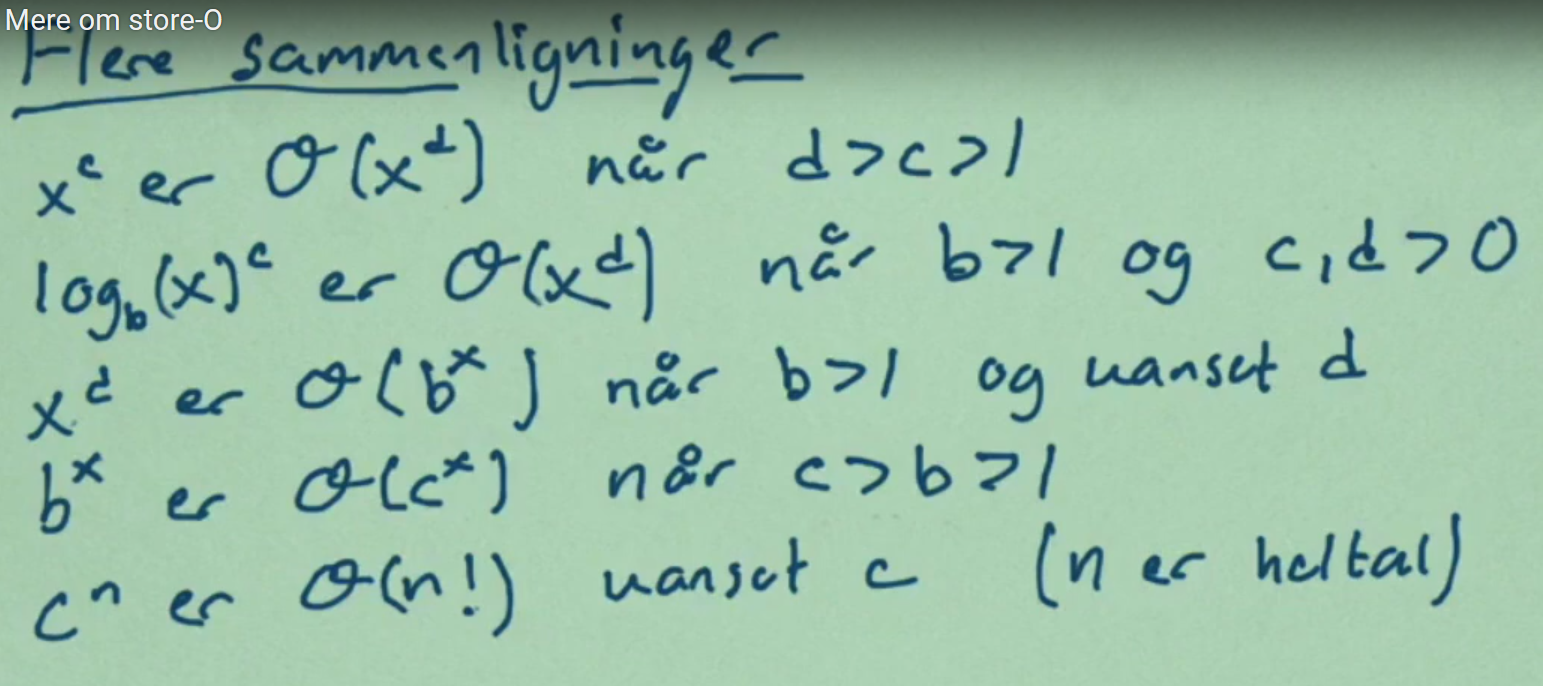 Mere om store-O
Flere sammenligninger
x^c er O(x^d) når d>c>1
log_b(x)^c er O(x^d) når b>1 og c,d>0
x^d er O(b^x) når b>1 og uanset d
b^x er O(c^x) når c>b>1
c^n er O(n!) uanset c (n er heltal)